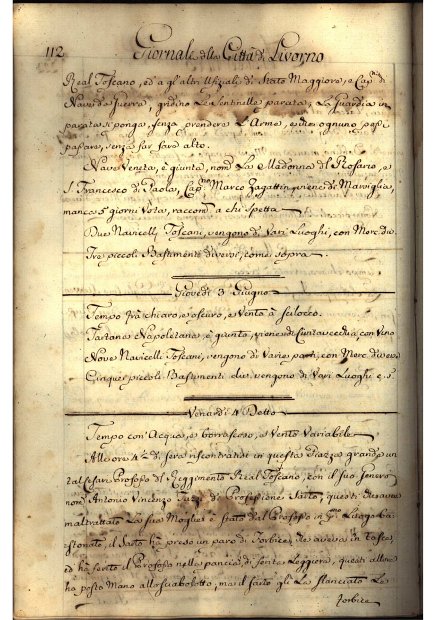 112 Giornale della Città di Livorno
Real Toscano, ed a gl'altri Ufiziali di Stato Maggiore, e Cap.ni
Nave da Guerra, gridino Le Sentinelle parata; La Guardia in
parata si ponga, senza prendere L'Arme, e che ognuno possi
passare, senza far fare alto.
Nave Veneta, è giunta, nom.ta La Madonna del Rosario, e
S. Francesco di Paola, Cap.no Marco Zagattin, viene di Marsiglia,
manca 5 giorni Vota, raccom.ta a chi spetta
Due Navicelli Toscani, vengono di Vari Luoghi, con Merc. div.
Tre piccoli Bastimenti diversi, come sopra.
Giovedi 3 Giugno
Tempo frà chiaro, e oscuro, e Vento à Scilocco.
Tartana Napoletana è giunta, viene di Civitavecchia, con Vino
Nove Navicelli Toscani, vengono di Varie parti, con Merc. divers.
Cinque piccoli Bastimenti div. vengono di Vari Luoghi e
Venardi 4 Detto
Tempo con Acqua, e borrascoso, e Vento Variabile
Alle ore 4 di sera riscontratasi in questa Piazza grande un
tal Profosso del Reggimento Real Toscano, con il suo Genero
nom. Antonio Vincenzo di Professione Sarto, questi aveva
maltrattato La sua Moglie è stato dal Profosso in Luogo ba-
stonato, il Sarto hà preso un paro di Forbice, che aveva in Tasca,
ed hà ferito il Profosso nella pancia, di ferite Leggiera, questi allora
hà posto Mano alla sciabolotto, ma il Sarto gli La slanciato Le
forbice